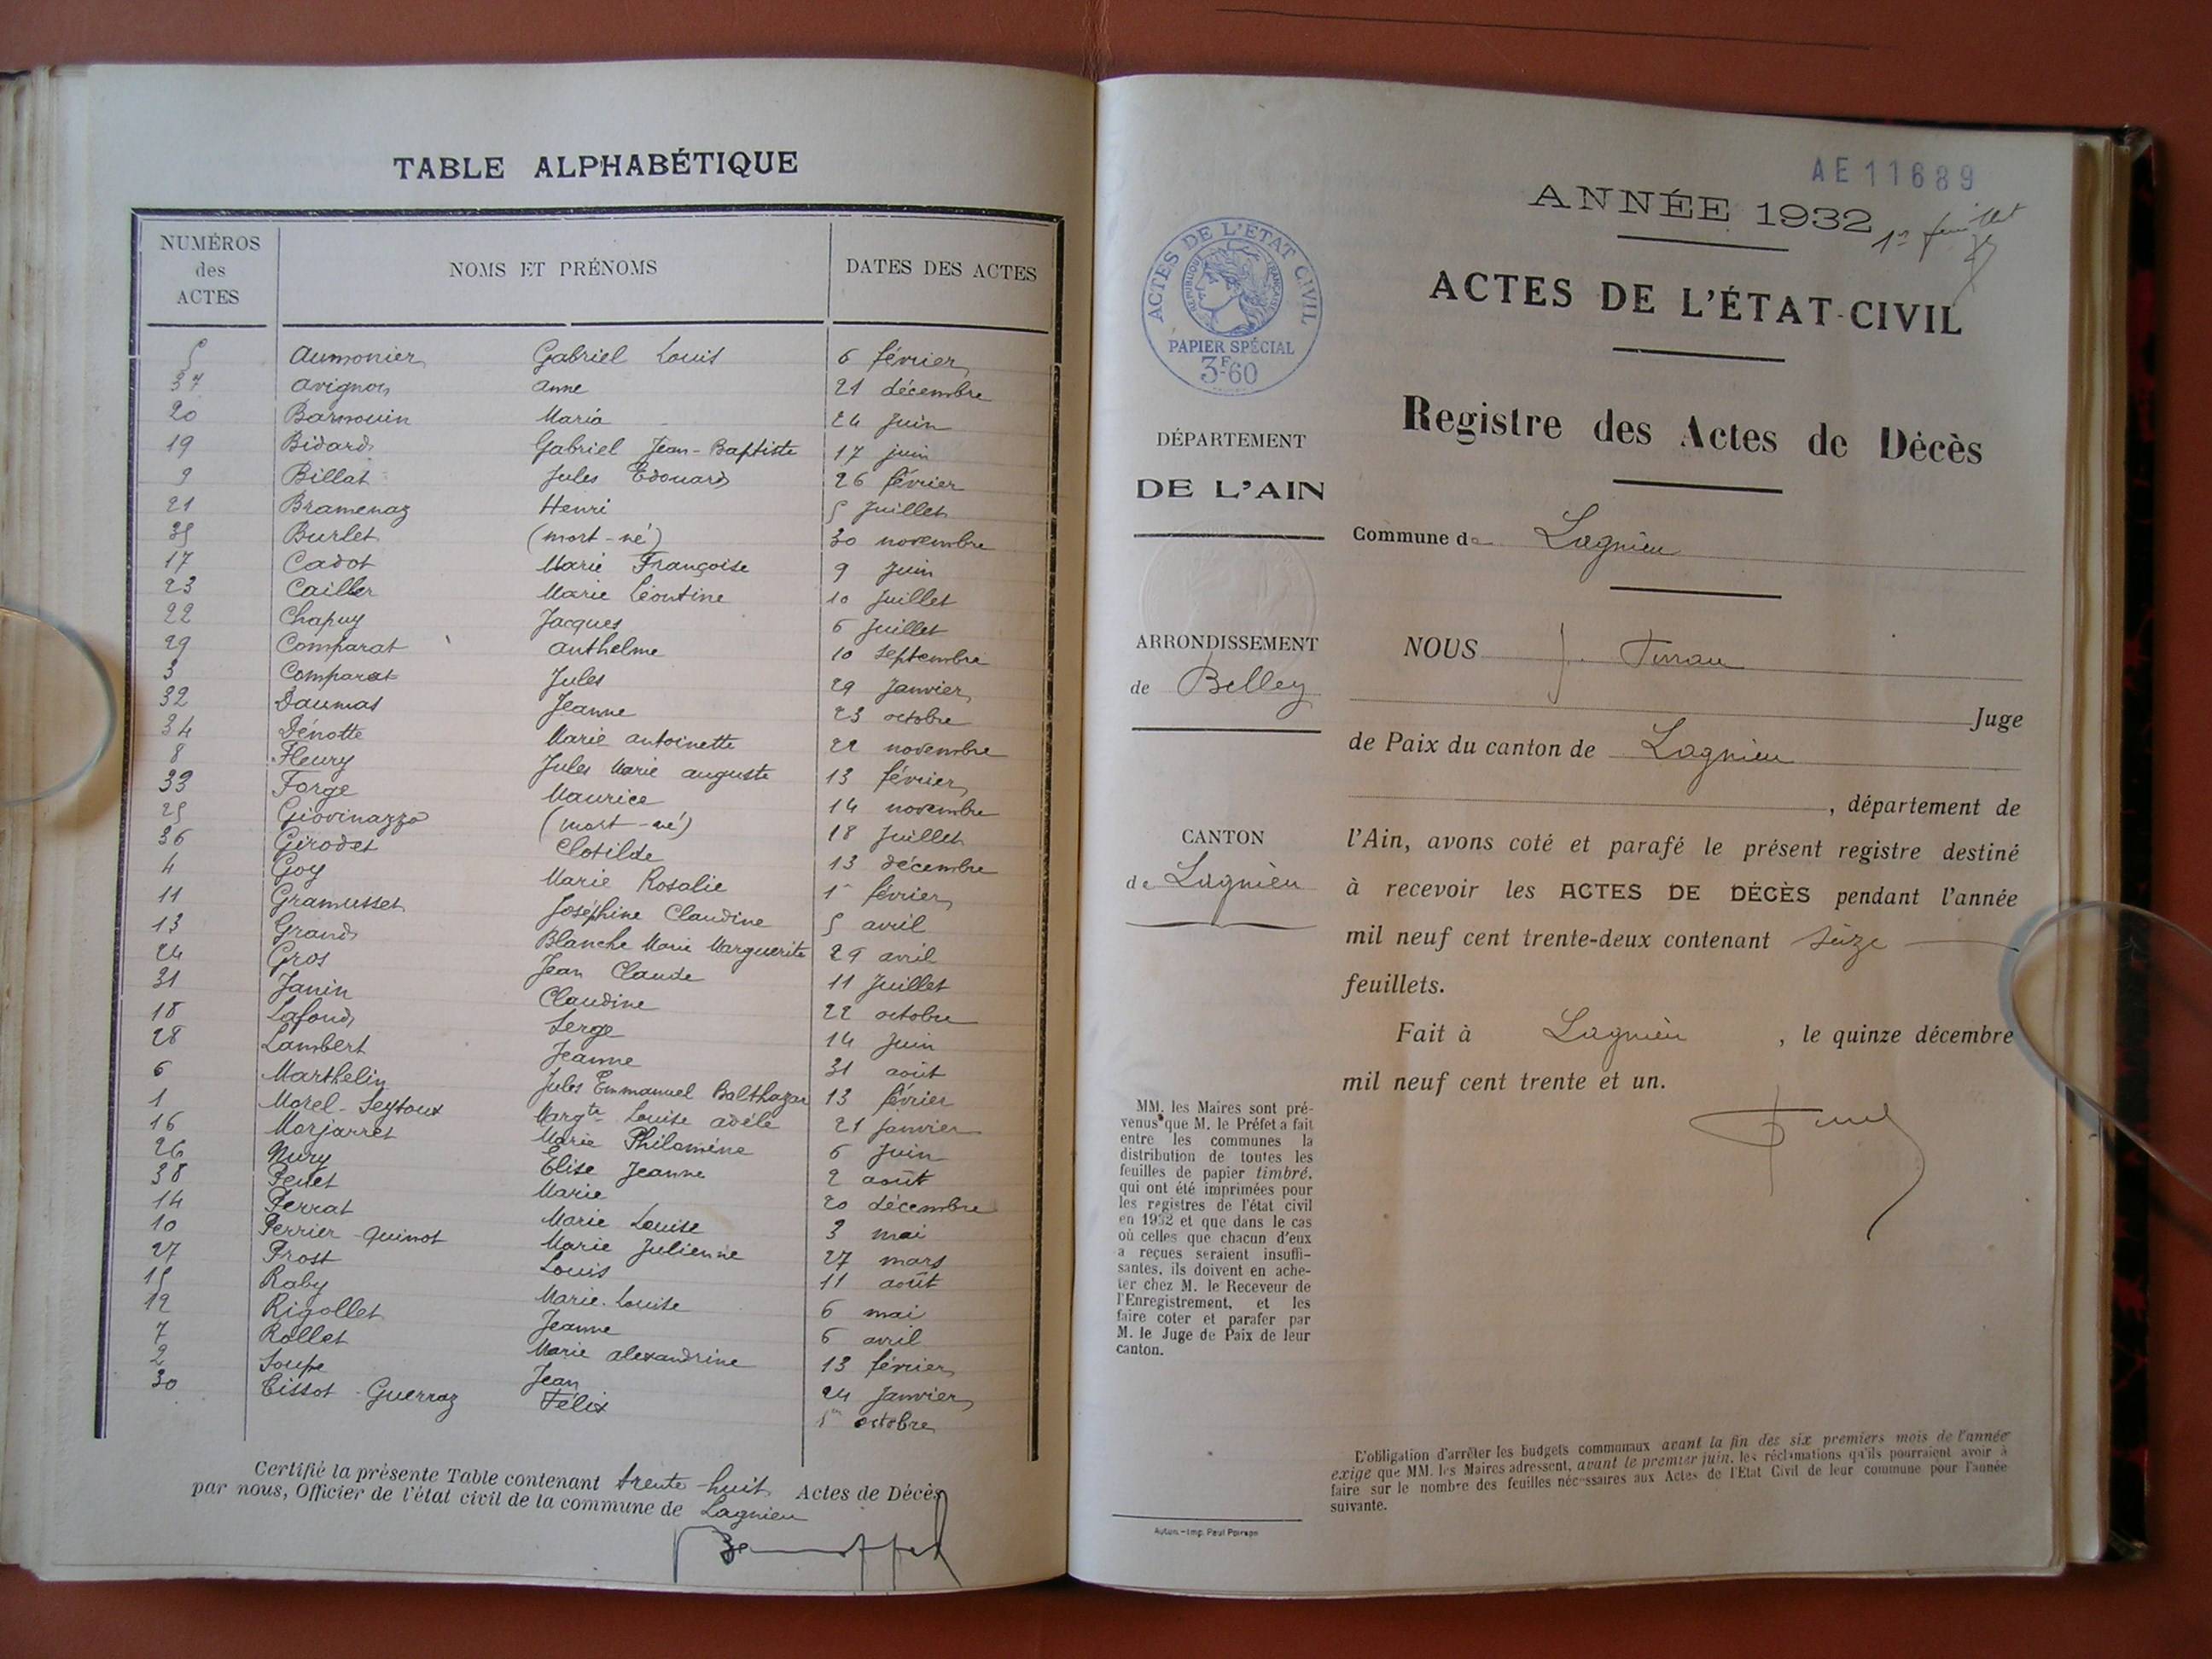 TABLE ALPHABÉTIQUE
NUMÉROS des ACTES NOMS ET PRÉNOMS DATES DES ACTES
5 Aumonier Gabriel Louis 6 février
37 Avignon Anne 21 décembre
20 Barnouin Maria 24 Juin
19 Bidard Gabriel Jean-Baptiste 17 juin
9 Billat Jules Edouard 26 février
21 Bramenaz Henri 5 Juillet
35 Burlet (mort-né) 30 novembre
17 Cadot Marie Françoise 9 Juin
23 Cailler Marie Léontine 10 Juillet
22 Chapuy Jacques 6 Juillet
29 Comparat Anthelme 10 Septembre
3 Comparat Jules 29 Janvier
32 Daumas Jeanne 23 octobre
34 Dénotte Marie Antoinette 22 novembre
8 Fleury Jules Marie Auguste 13 février
33 Forge Maurice 14 novembre
25 Giovinazzo (mort-né) 18 Juillet
36 Girodet Clotilde 13 décembre
4 Goy Marie Rosalie 1er février
11 Gramusset Joséphine Claudine 5 avril
13 Grand Blanche Marie Marguerite 29 avril
24 Gros Jean Claude 11 Juillet
31 Janin Claudine 22 octobre
18 Lafond Serge 14 Juin
28 Lambert Jeanne 31 août
6 Marthelin Jules Emmanuel Balthazar 13 février
1 Morel-Seytoux Margte Louise Adèle 21 Janvier
16 Morjarret Marie Philomène 6 Juin
26 Nury Elise Jeanne 2 août
38 Penet Marie 20 décembre
14 Perrat Marie Louise 3 mai
10 Perrier-Quinot Marie Julienne 27 mars
27 Prost Louis 11 août
15 Raby Marie-Louise 6 mai
12 Rigollet Jeanne 6 avril
7 Rollet Marie Alexandrine 13 février
2 Soupe Jean 24 Janvier
30 Tissot-Guerraz Félix 1er octobre
Certifié la présente Table contenant trente-huit Actes de Décès
par nous, Officier de l'état civil de la commune de Lagnieu
AE 11689
ANNÉE 1932
1er feuillet
ACTES DE L'ÉTAT CIVIL
RÉPUBLIQUE FRANÇAISE
PAPIER SPÉCIAL
3F60
ACTES DE L'ÉTAT-CIVIL
Registre des Actes de Décès
DÉPARTEMENT
DE L'AIN
Commune de Lagnieu
ARRONDISSEMENT
de Belley
NOUS J.
Juge
de Paix du canton de Lagnieu
, département de
CANTON
de Lagnieu
l'Ain, avons coté et parafé le présent registre destiné
à recevoir les ACTES DE DÉCÈS pendant l'année
mil neuf cent trente-deux contenant seize
feuillets.
Fait à Lagnieu , le quinze décembre
mil neuf cent trente et un.
MM. les Maires sont pré-
venus que M. le Préfet a fait
entre les communes la
distribution de toutes les
feuilles de papier timbré,
qui ont été imprimées pour
les registres de l'état civil
en 1932 et que dans le cas
où celles que chacun d'eux
a reçues seraient insuffi-
santes, ils doivent en ache-
ter chez M. le Receveur de
l'Enregistrement, et les
faire coter et parafer par
M. le Juge de Paix de leur
canton.
L'obligation d'arrêter les budgets communaux avant la fin des six premiers mois de l'année
exige que MM. les Maires adressent, avant le premier juin, les réclamations qu'ils pourraient avoir à
faire sur le nombre des feuilles nécessaires aux Actes de l'Etat Civil de leur commune pour l'année
suivante.
Autun. - Imp. Paul Poirson